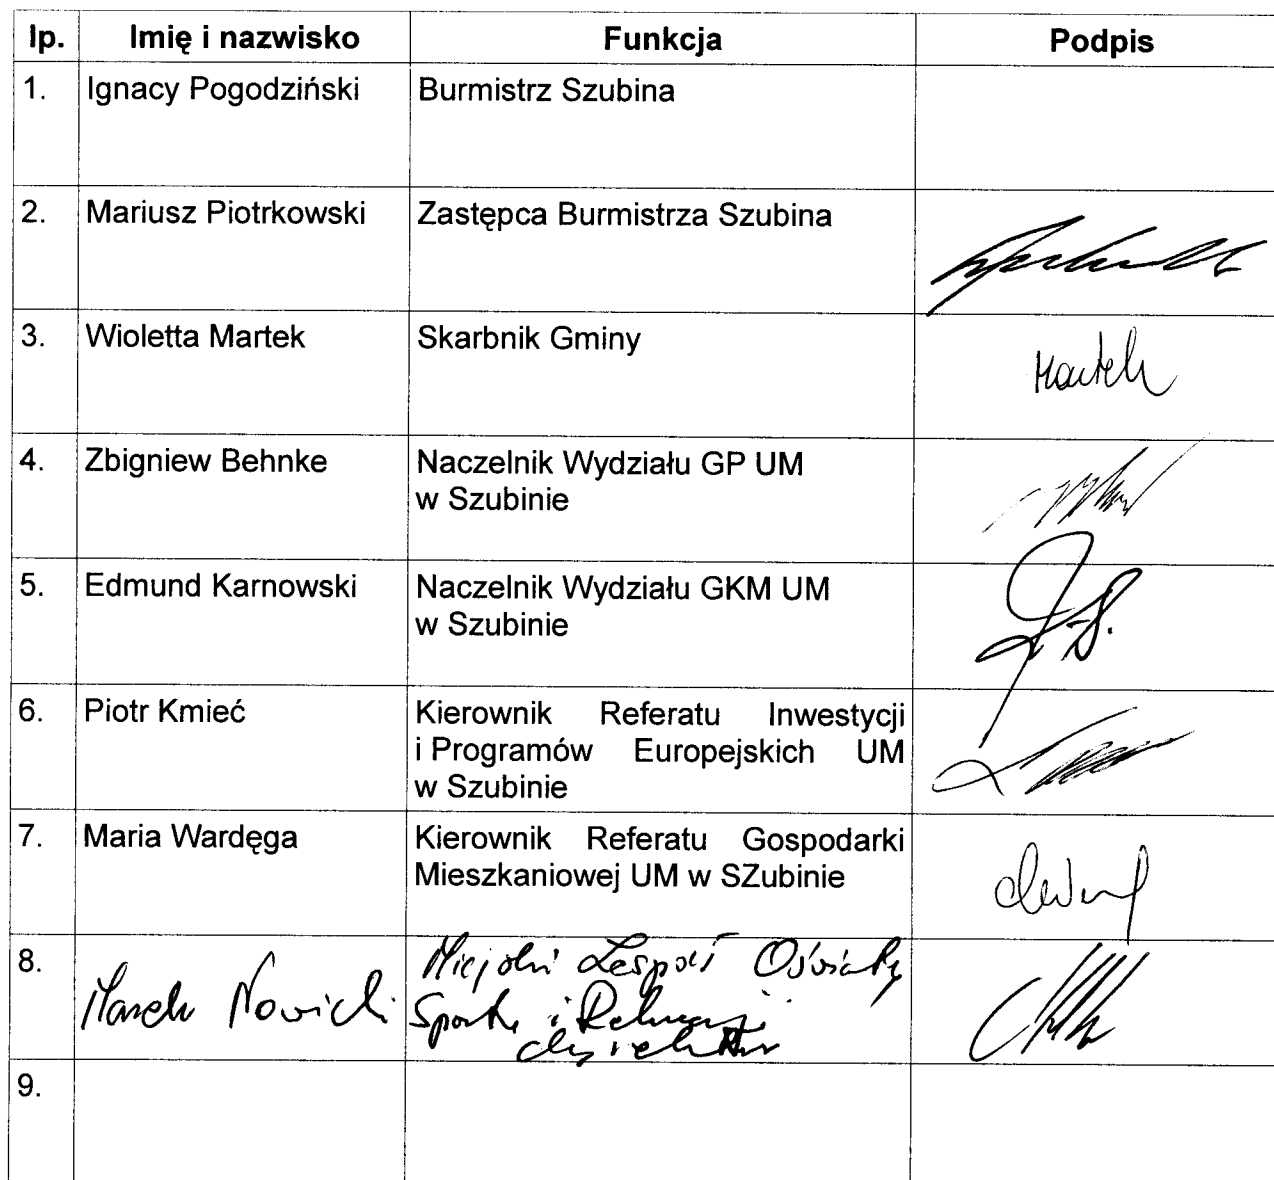 lp. Imię i nazwisko Funkcja Podpis
1. Ignacy Pogodziński Burmistrz Szubina
2. Mariusz Piotrkowski Zastępca Burmistrza Szubina
3. Wioletta Martek Skarbnik Gminy Martek
4. Zbigniew Behnke Naczelnik Wydziału GP UM
w Szubinie
5. Edmund Karnowski Naczelnik Wydziału GKM UM
w Szubinie
6. Piotr Kmieć Kierownik Referatu Inwestycji
i Programów Europejskich UM
w Szubinie
7. Maria Wardęga Kierownik Referatu Gospodarki
Mieszkaniowej UM w SZubinie
8. Marek Nowicki Miejski Zespół Oświaty
Sportu i Rekreacji
dyrektor
9.